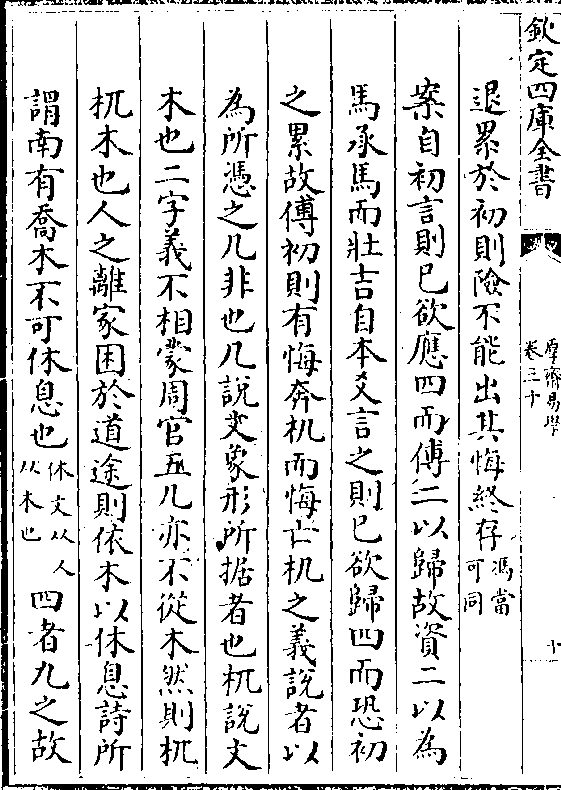 欽定四庫全書
厚齋易學
卷三十
十
退累於初則險不能出其悔終存馮當可同
案自初言則已欲應四而傅二以歸故資二以為
馬承馬而壯吉自本爻言之則已欲歸四而恐初
之累故傅初則有悔奔机而悔亡机之義說者以
為所憑之几非也几說文象形所据者也机說文
木也二字義不相蒙周官五几亦不從木然則机
杌木也人之離家困於道途則依木以休息詩所
謂南有喬木不可休息也休文从人从木也四者九之故